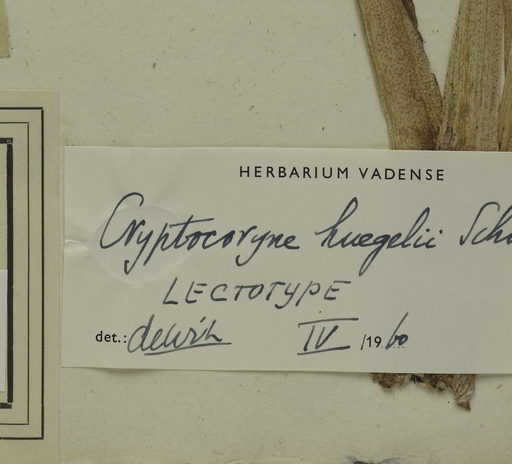 HERBARIUM VADENSE
Cryptocoryne huegelii Scho
LECTOTYPE
det.: deWit IV /1960